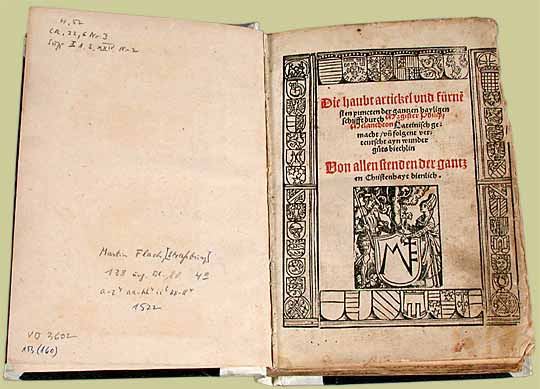 H. 52
CR. 22, 6 Nr 3
Martin Flach [Straßburg]
138 4°
1522
VD 3602
153 (160)
Die haubt artickel vnd fürnē
sten puncten der gantzen hayligen
schrifft durch Magister Philip/
Melancthon Lateinisch ge-
macht / vñ folgent ver-
teutscht ayn wunder
gůts biechlin
Von allen stenden der gantz
en Christenhayt dienlich.
MF